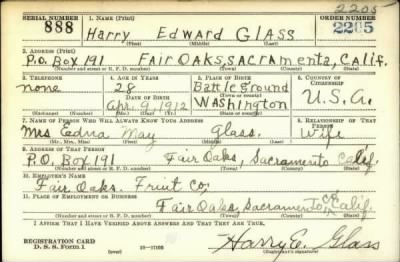 2205
SERIAL NUMBER 1. NAME (Print) ORDER NUMBER
888 Harry Edward GLASS 2205
(First) (Middle) (Last)
2. ADDRESS (Print)
P.O. Box 191 Fair Oaks, Sacramento, Calif.
(Number and street or R. F. D. number) (Town) (County) (State)
3. TELEPHONE 4. AGE IN YEARS 5. PLACE OF BIRTH 6. COUNTRY OF CITIZENSHIP
none 28 Battleground U.S.A.
DATE OF BIRTH (Town or county)
Apr. 9, 1912 Washington
(Mo.) (Day) (Yr.) (State or country)
7. NAME OF PERSON WHO WILL ALWAYS KNOW YOUR ADDRESS 8. RELATIONSHIP OF THAT PERSON
Mrs Edna May Glass. Wife
(Mr., Mrs., Miss) (First) (Middle) (Last)
9. ADDRESS OF THAT PERSON
P.O. Box 191 Fair Oaks, Sacramento Calif.
(Number and street or R. F. D. number) (Town) (County) (State)
10. EMPLOYER'S NAME
Fair Oaks. Fruit Co.
11. PLACE OF EMPLOYMENT OR BUSINESS
Fair Oaks, Sacramento Calif.
(Number and street or R. F. D. number) (Town) (County) (State)
I AFFIRM THAT I HAVE VERIFIED ABOVE ANSWERS AND THAT THEY ARE TRUE.
REGISTRATION CARD
D. S. S. Form 1 Harry E. Glass
(Registrant's signature)